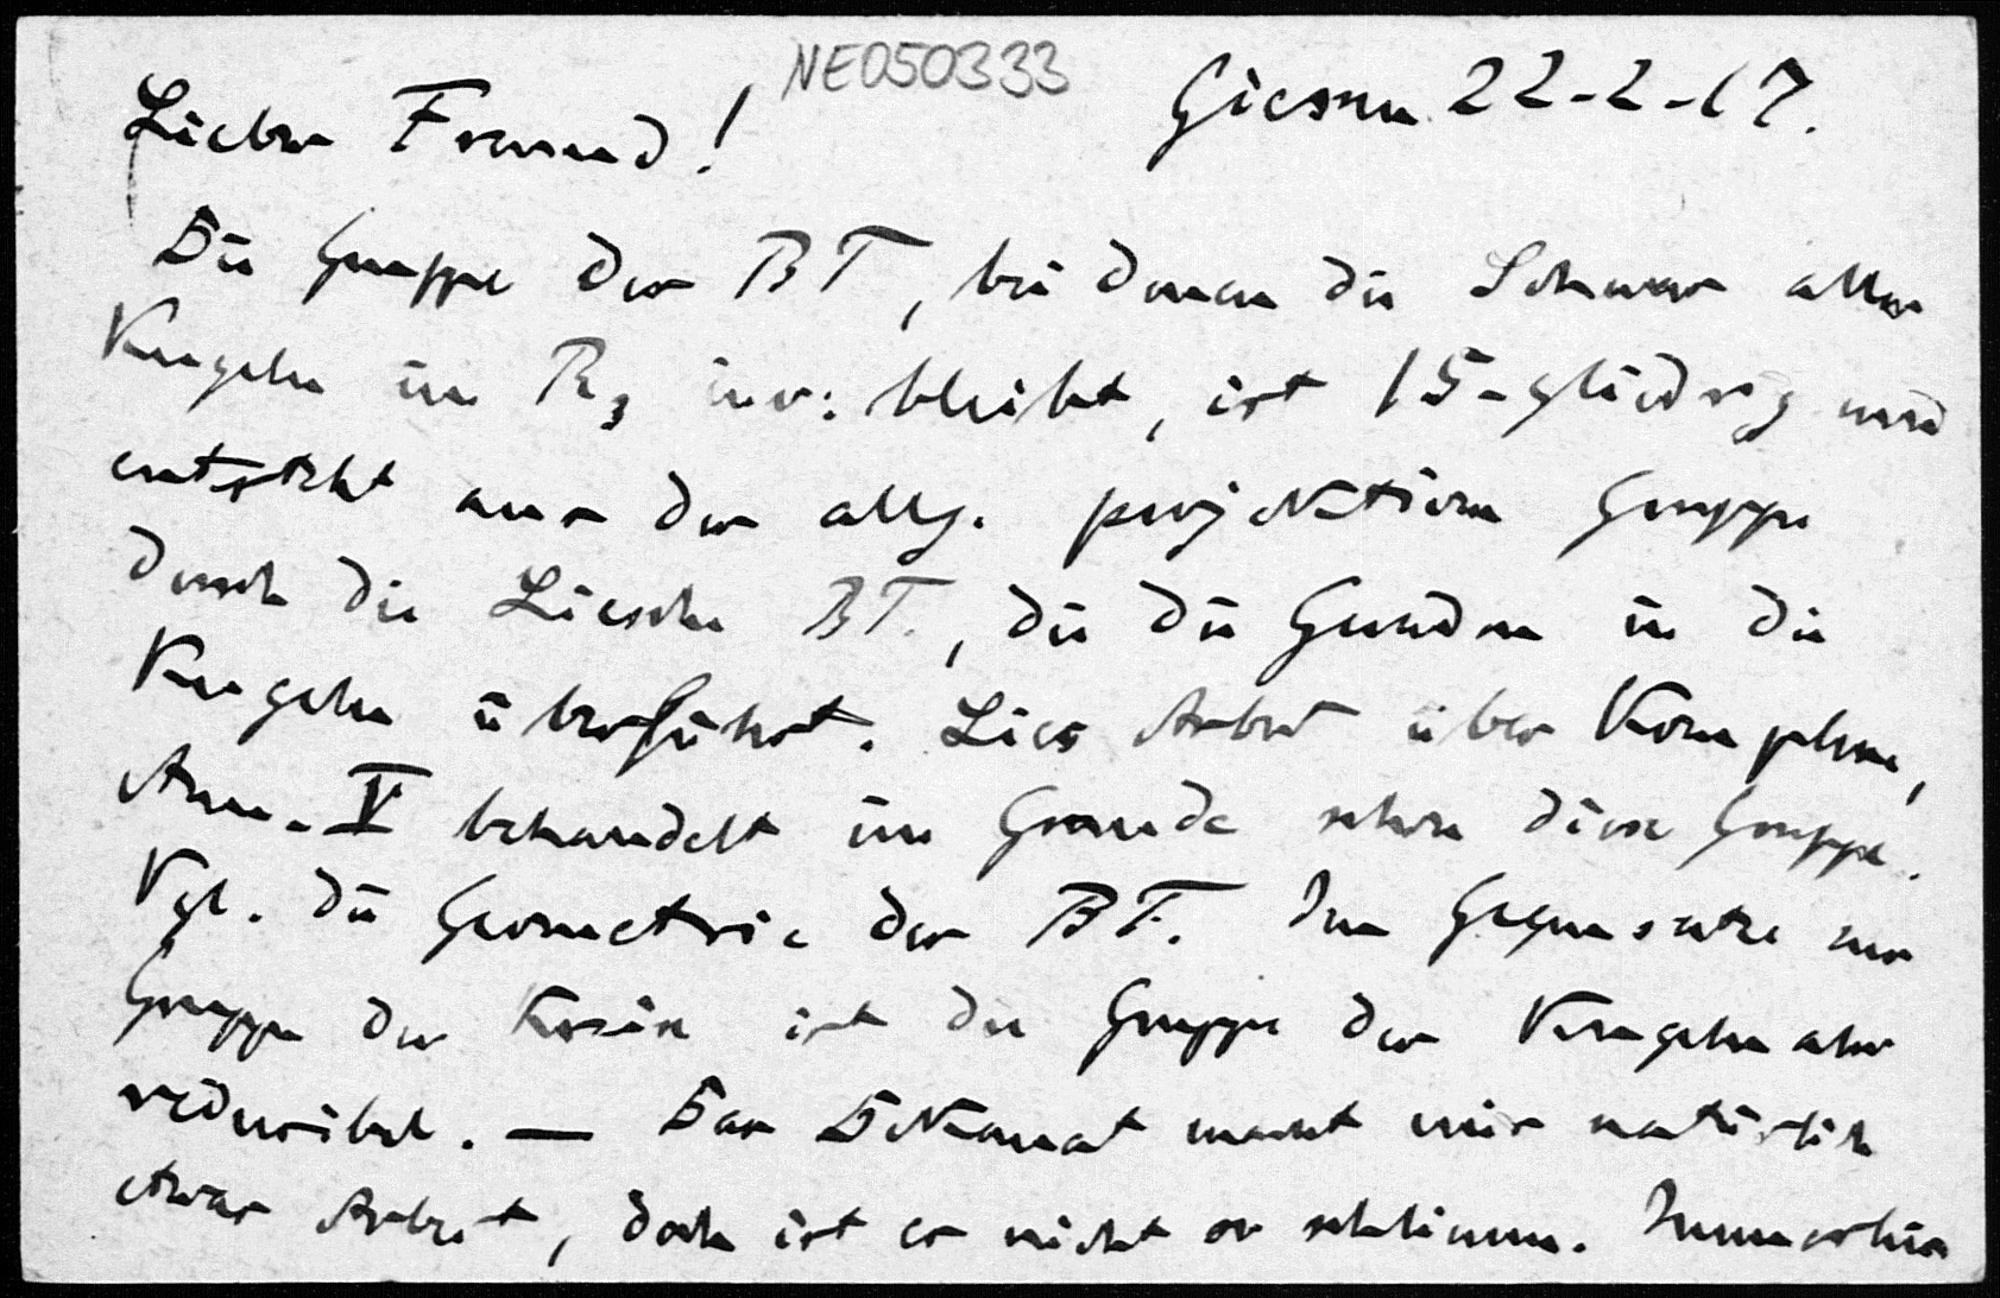 NE050333
Giessen 22-2-17.
Lieber Freund!
Die Gruppe der BT, bei denen die Schaar aller
Kugeln im R₃ inv: bleibt, ist 15-gliedrig und
entsteht aus der allg. projektiven Gruppe
durch die Liesche BT., die die Geraden in die
Kugeln überführt. Lies Arbeit über Komplexe,
Ann. V behandelt im Grunde schon diese Gruppe.
Vgl. die Geometrie der BT. Im Gegensatze zur
Gruppe der Kreise ist die Gruppe der Kugeln aber
reduzibel. — Das Dekanat macht mir natürlich
etwas Arbeit, doch ist es nicht so schlimm. Immerhin